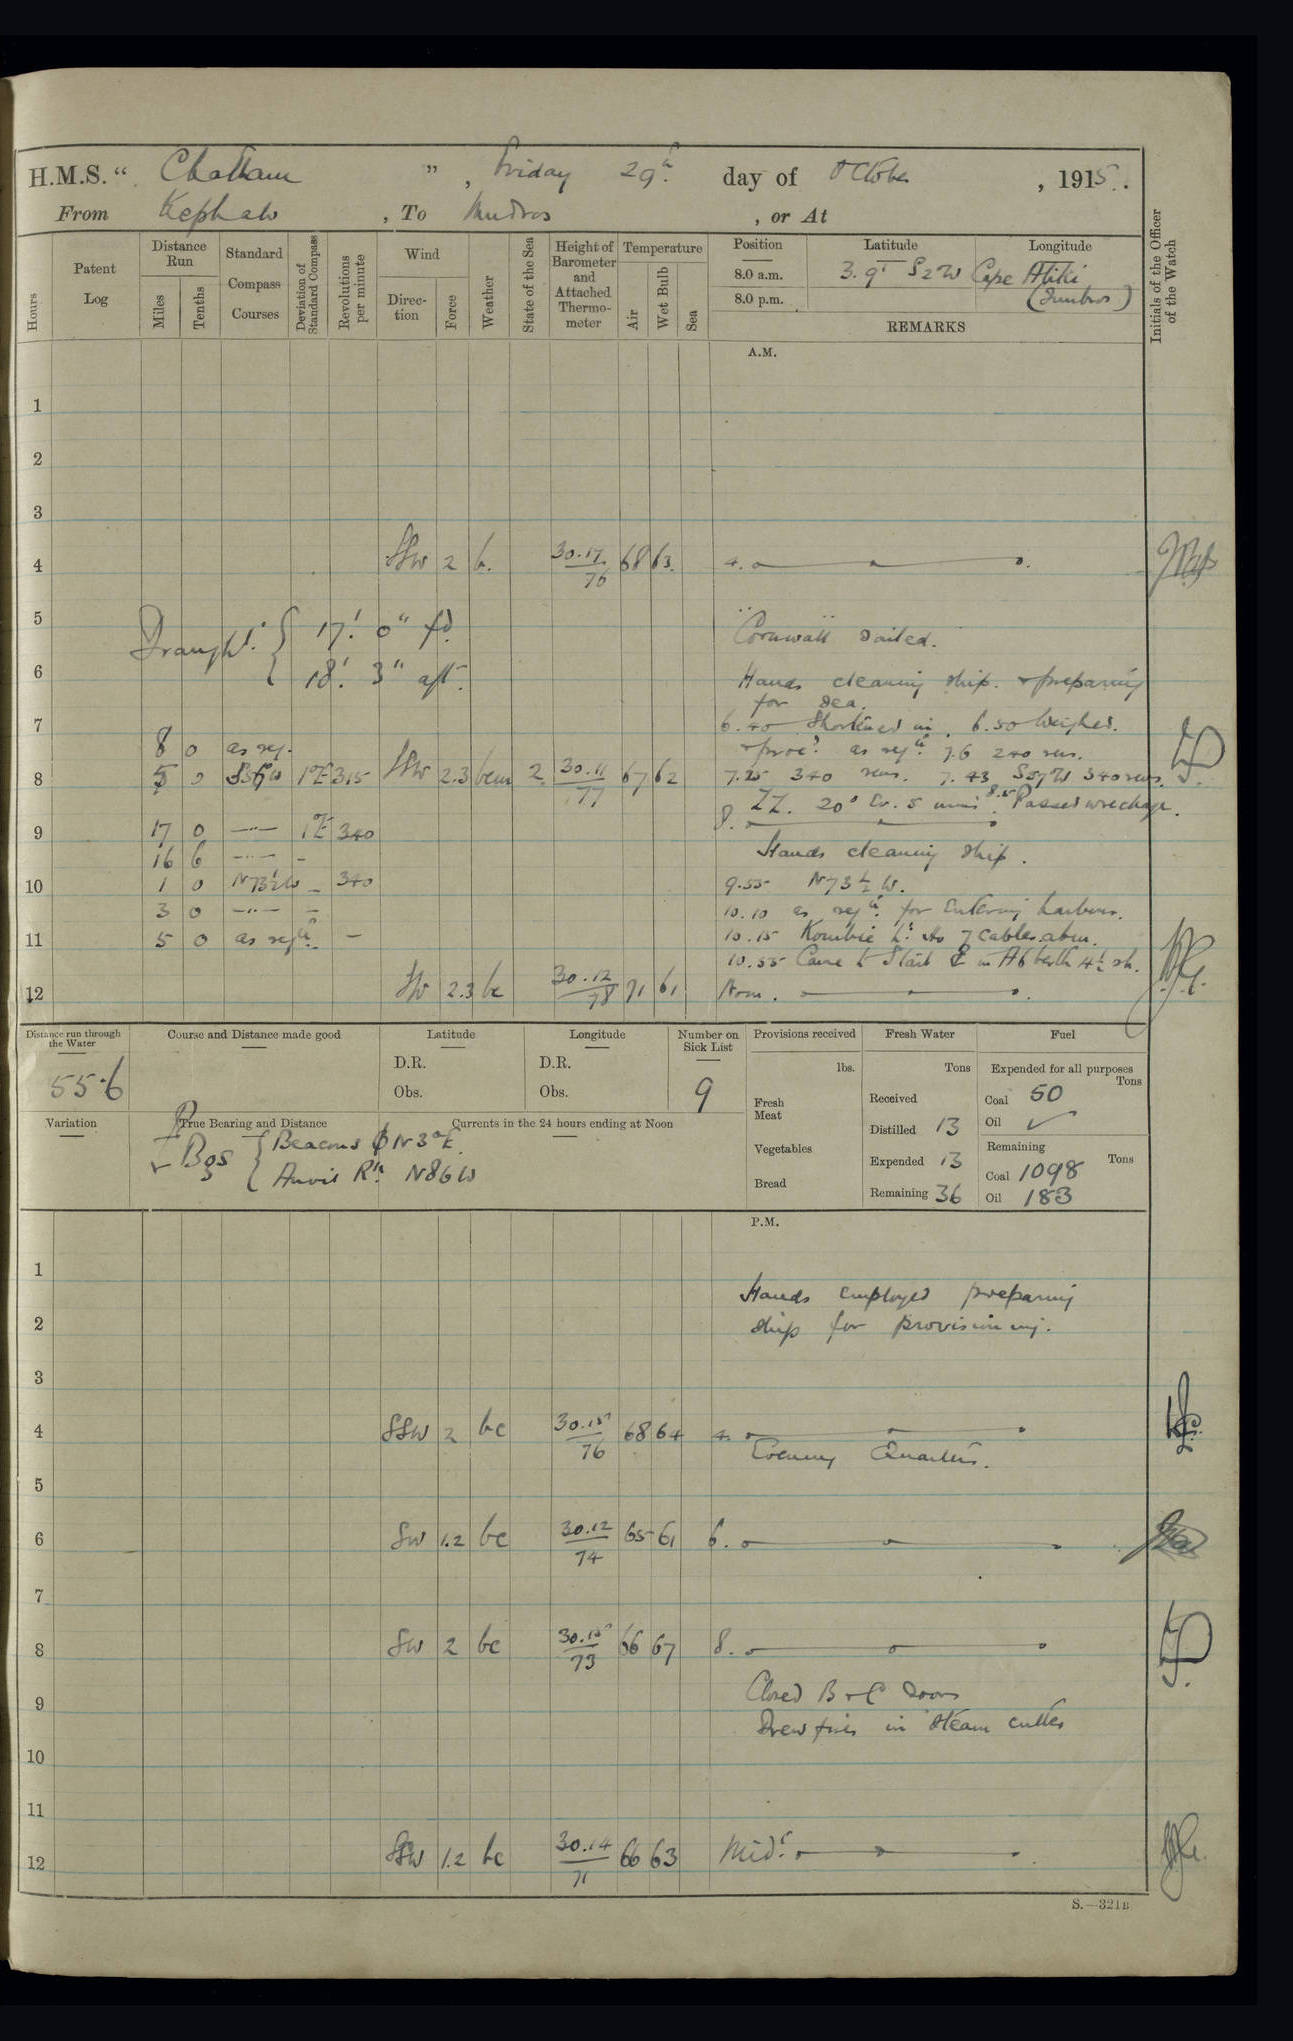 H.M.S. “ Chatham ” , Friday 29th day of October , 1915.
From Kephalo , To Mudros , or At
Hours
Patent Log
Distance Run
Miles
Tenths
Standard Compass Courses
Deviation of Standard Compass
Revolutions per minute
Wind
Direction
Force
Weather
State of the Sea
Height of Barometer and Attached Thermometer
Temperature
Air
Wet Bulb
Sea
Position
8.0 a.m.
8.0 p.m.
Latitude
Longitude
3.9' S2W Cape
(Imbros)
REMARKS
Initials of the Officer of the Watch
A.M.
1
2
3
4 SSW 2 b. 30.17/76 68 63 4.
5 "Cornwall" sailed.
Draught. { 17' 0" fd.
18' 3" aft.
6 Hands cleaning ship. & preparing
for sea.
7 6.40 Shortened in. 6.50 Weighed.
8 0 as req. & proc'd. as req'd. 7.6 240 revs.
8 5 0 S57W 1°E 315 SSW 2.3 bcm 2 30.11/77 67 62 7.25 340 revs. 7.43 S57W 340 revs.
8. ZZ. 20° Ev. 5 mins. 8.5 Passed wreckage.
9 17 0 —"— 1°E 340
16 6 —"— - Hands cleaning ship.
10 1 0 N73½W - 340 9.55 N73½W.
3 0 —"— - 10.10 as req'd. for entering harbour.
11 5 0 as req'd. - 10.15 Kombie Lt. Ho 7 cables abm.
10.55 Came to Stbd ⚓ in A6 berth 4½ sh.
12 SW 2.3 bc 30.12/78 71 61 Noon.
Distance run through the Water
55.6
Course and Distance made good
Latitude
D.R.
Obs.
Longitude
D.R.
Obs.
Number on Sick List
9
Provisions received
lbs.
Fresh Meat
Vegetables
Bread
Fresh Water
Tons
Received
Distilled 13
Expended 13
Remaining 36
Fuel
Expended for all purposes
Tons
Coal 50
Oil ✓
Remaining
Tons
Coal 1098
Oil 183
Variation
True Bearing and Distance
Currents in the 24 hours ending at Noon
Bgs { Beacons ϕ N3°E.
Anvil Rk. N86W
P.M.
1
Hands employed preparing
2 ship for provisioning.
3
4 SSW 2 bc 30.15/76 68 64 4.
Evening Quarters.
5
6 SW 1.2 bc 30.12/74 65 61 6.
7
8 SW 2 bc 30.15/73 66 67 8.
Closed B & C doors
9
Drew fires in steam cutter
10
11
12 SSW 1.2 bc 30.14/71 66 63 Midt.
S.—321B